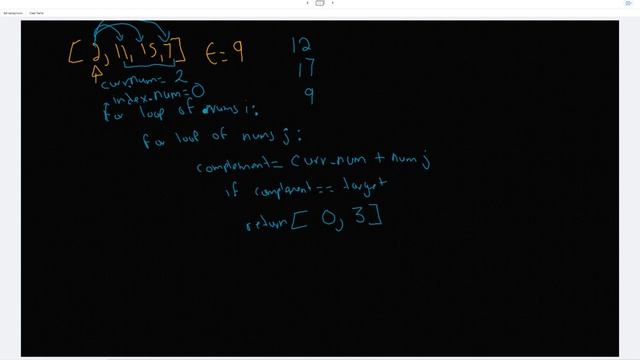 [ 2, 11, 15, 7 ] t = 9
12
17
9
curr.num = 2
index.num = 0
for loop of nums i:
for loop of nums j:
complement = curr_num + num j
if complement == target
return [ 0, 3 ]